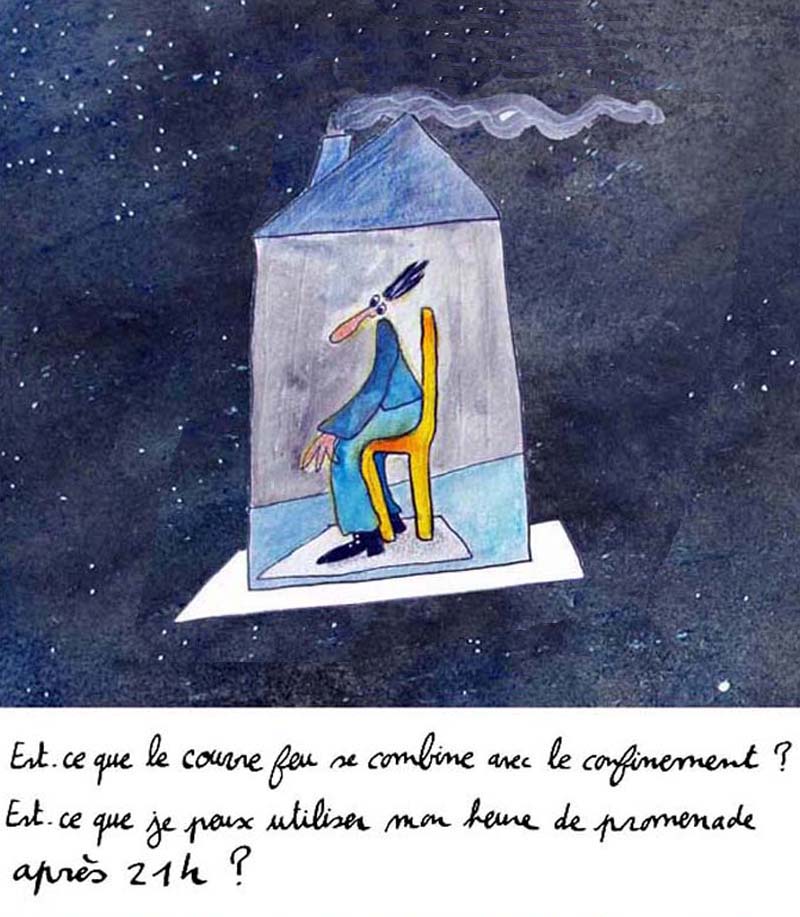 Est-ce que le couvre feu se combine avec le confinement ?
Est-ce que je peux utiliser mon heure de promenade
après 21h ?